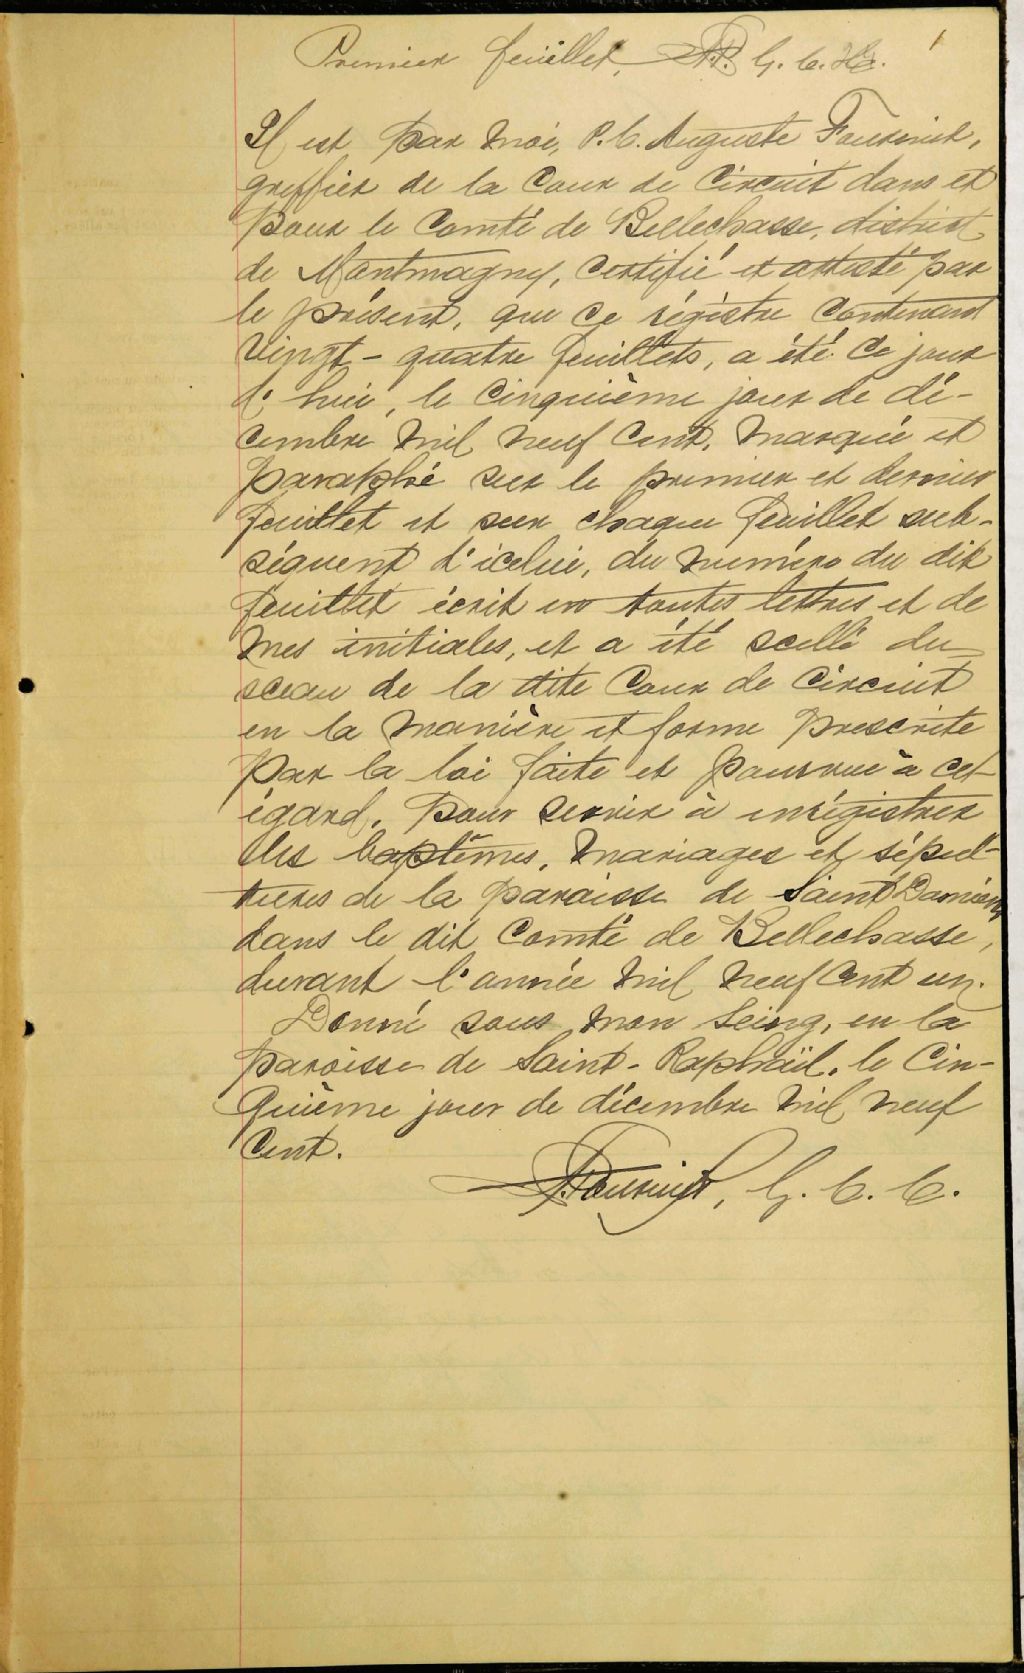 Premier feuillet, G. C. C.
1
Il est par moi, P. C. Auguste Fournier,
greffier de la Cour de Circuit dans et
pour le Comté de Bellechasse, district
de Montmagny, certifié et attesté par
le présent, que ce régistre contenant
vingt-quatre feuillets, a été ce jour
d'hui, le cinquième jour de dé-
cembre mil neuf cent, marqué et
paraphé sur le premier et dernier
feuillet et sur chaque feuillet sub-
séquent d'icelui, du numéro du dit
feuillet écrit en toutes lettres et de
mes initiales, et a été scellé du
sceau de la dite Cour de Circuit
en la manière et forme prescrite
par la loi faite et pourvue à cet
égard, pour servir à enrégistrer
les baptêmes, mariages et sépul-
tures de la paroisse de Saint Damien
dans le dit Comté de Bellechasse,
durant l'année mil neuf cent un.
Donné sous mon seing, en la
paroisse de Saint-Raphaël, le cin-
quième jour de décembre mil neuf
cent.
Fournier, G. C. C.